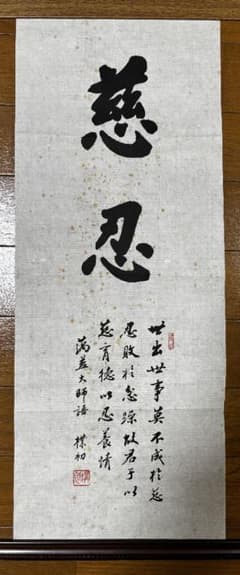 慈忍
世出世事莫不成於慈
忍敗於忿躁故君子以
慈育德以忍養情
蕅益大師語 樸初